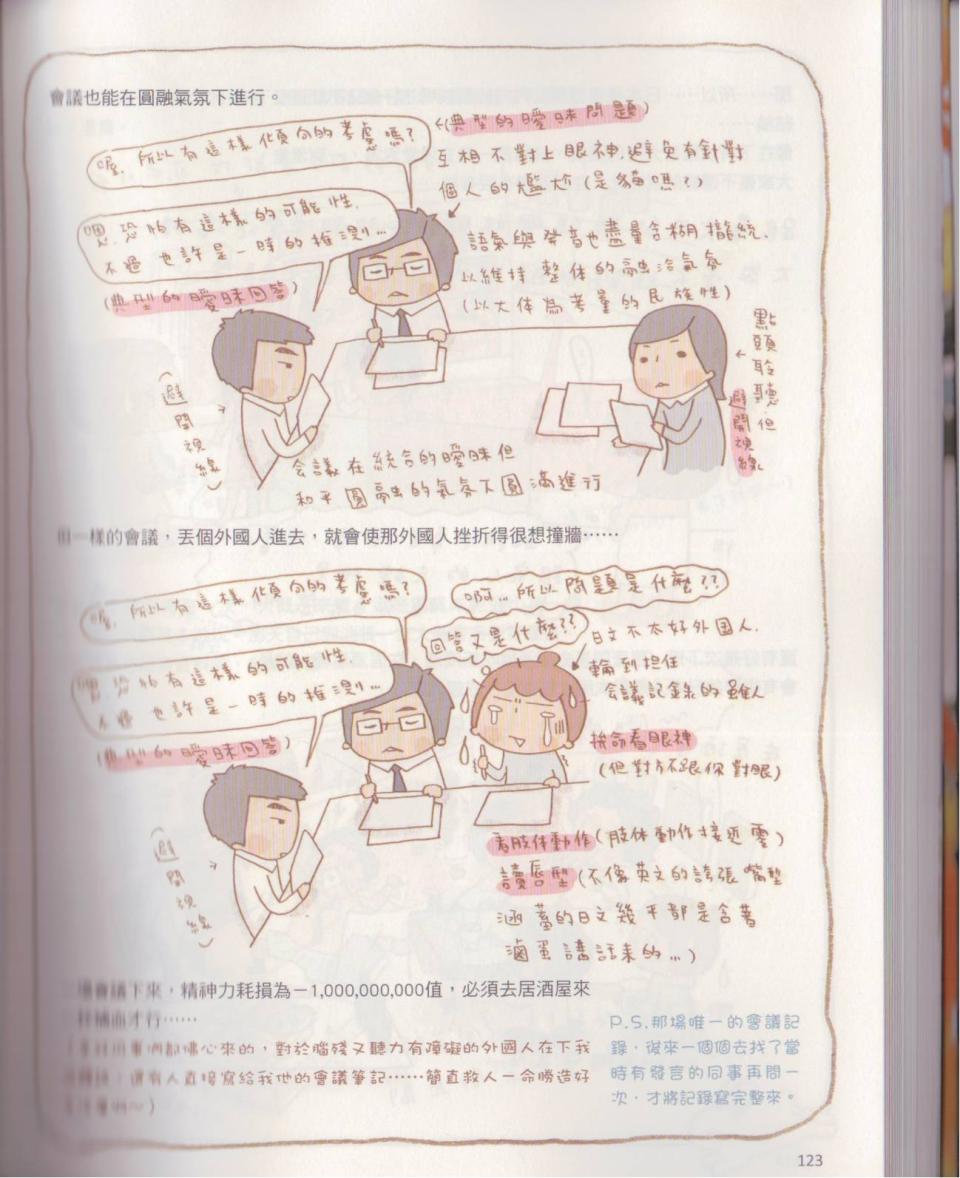 會議也能在圓融氣氛下進行。
喔,所以有這樣傾向的考慮嗎?
←(典型的曖昧問題)
互相不對上眼神,避免有針對
個人的尷尬(是貓嗎?)
嗯,恐怕有這樣的可能性,
不過也許是一時的推測…
(典型的曖昧回答)
語氣與發音也盡量含糊攏統,
以維持整体的融洽氣氛
(以大体為考量的民族性)
點頭聆聽,但
避開視線
(避開視線)
会議在統合的曖昧但
和平圓融的氣氛下圓滿進行
一樣的會議,丟個外國人進去,就會使那外國人挫折得很想撞牆⋯⋯
喔,所以有這樣傾向的考慮嗎?
啊…所以問題是什麼??
回答又是什麼??
日文不太好外国人.
嗯,恐怕有這樣的可能性,
不過也許是一時的推測…
(典型的曖昧回答)
輪到担任
会議記錄的雖人
拚命看眼神
(但對方不跟你對眼)
(避開視線)
看肢体動作(肢体動作接近零)
讀唇型(不像英文的誇張嘴型
涵蓄的日文幾乎都是含著
滷蛋講話來的…)
場會議下來,精神力耗損為-1,000,000,000值,必須去居酒屋來
補血才行⋯⋯
同事們都佛心來的,對於腦殘又聽力有障礙的外國人在下我
還有人直接寫給我他的會議筆記⋯⋯簡直救人一命勝造好
P.S.那場唯一的會議記
錄,後來一個個去找了當
時有發言的同事再問一
次,才將記錄寫完整來。
123